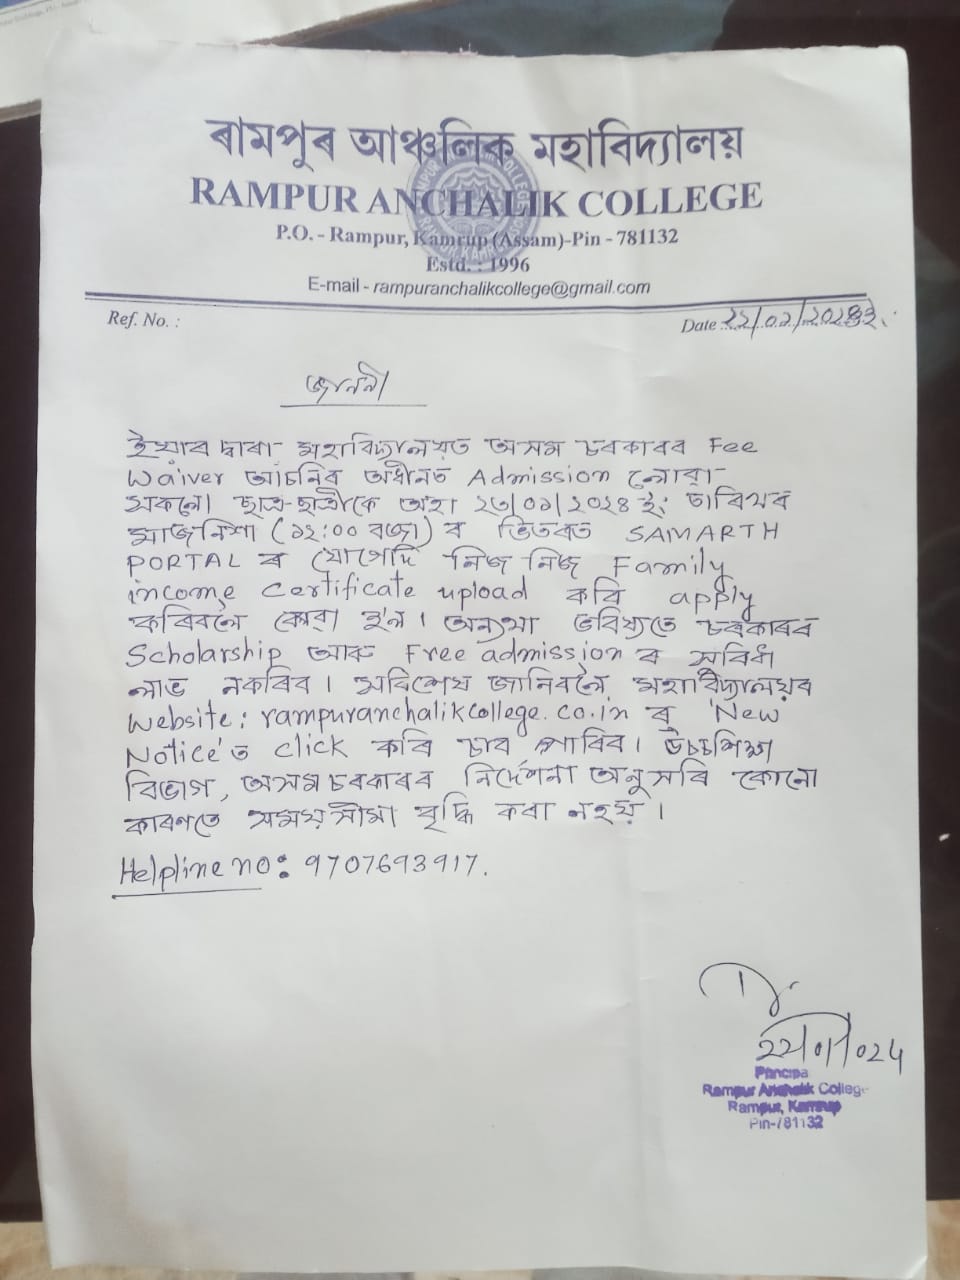 ৰামপুৰ আঞ্চলিক মহাবিদ্যালয়
RAMPUR ANCHALIK COLLEGE
P.O. - Rampur, Kamrup (Assam)-Pin - 781132
Estd. : 1996
E-mail - rampuranchalikcollege@gmail.com
Ref. No. :
Date
জাননী
ইয়াৰ দ্বাৰা মহাবিদ্যালয়ত অসম চৰকাৰৰ Fee
Waiver আঁচনিৰ অধীনত Admission লোৱা
সকলো ছাত্ৰ-ছাত্ৰীকে অহা ২৩/০১/২০২৪ ইং তাৰিখৰ
মাজনিশা (১২:০০ বজা) ৰ ভিতৰত SAMARTH
PORTAL ৰ যোগেদি নিজ নিজ Family
income certificate upload কৰি apply
কৰিবলৈ কোৱা হ'ল। অন্যথা ভৱিষ্যতে চৰকাৰৰ
Scholarship আৰু Free admission ৰ সুবিধা
লাভ নকৰিব। সবিশেষ জানিবলৈ মহাবিদ্যালয়ৰ
Website: rampuranchalikcollege.co.in ৰ 'New
Notice'ত click কৰি চাব পাৰিব। উচ্চশিক্ষা
বিভাগ, অসম চৰকাৰৰ নিৰ্দেশনা অনুসৰি কোনো
কাৰণতে সময়সীমা বৃদ্ধি কৰা নহয়।
Helpline no: 9707693917.
22/01/024
Principa
Rampur Anchalik College
Rampur, Kamrup
Pin-781132